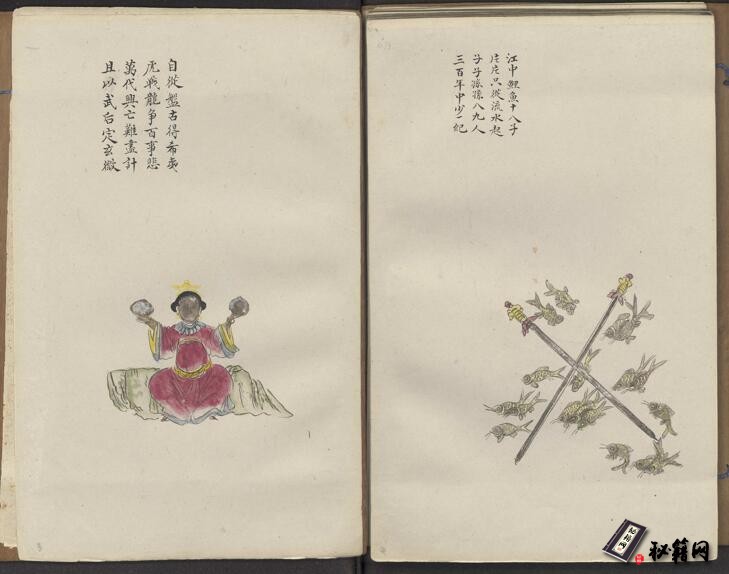 江中鯉魚十八子
片片只從流水起
子子孫孫八九人
三百年中少一紀
自從盤古得希夷
虎戰龍爭百事悲
萬代興亡難盡計
且以武后定玄微
秘籍网